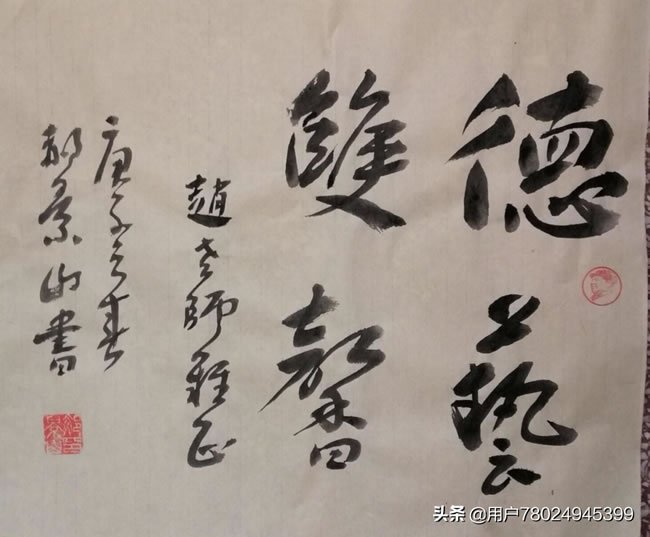 德藝
雙馨
趙老師雅正
庚子之春
郝景山書
头条 @用户78024945399